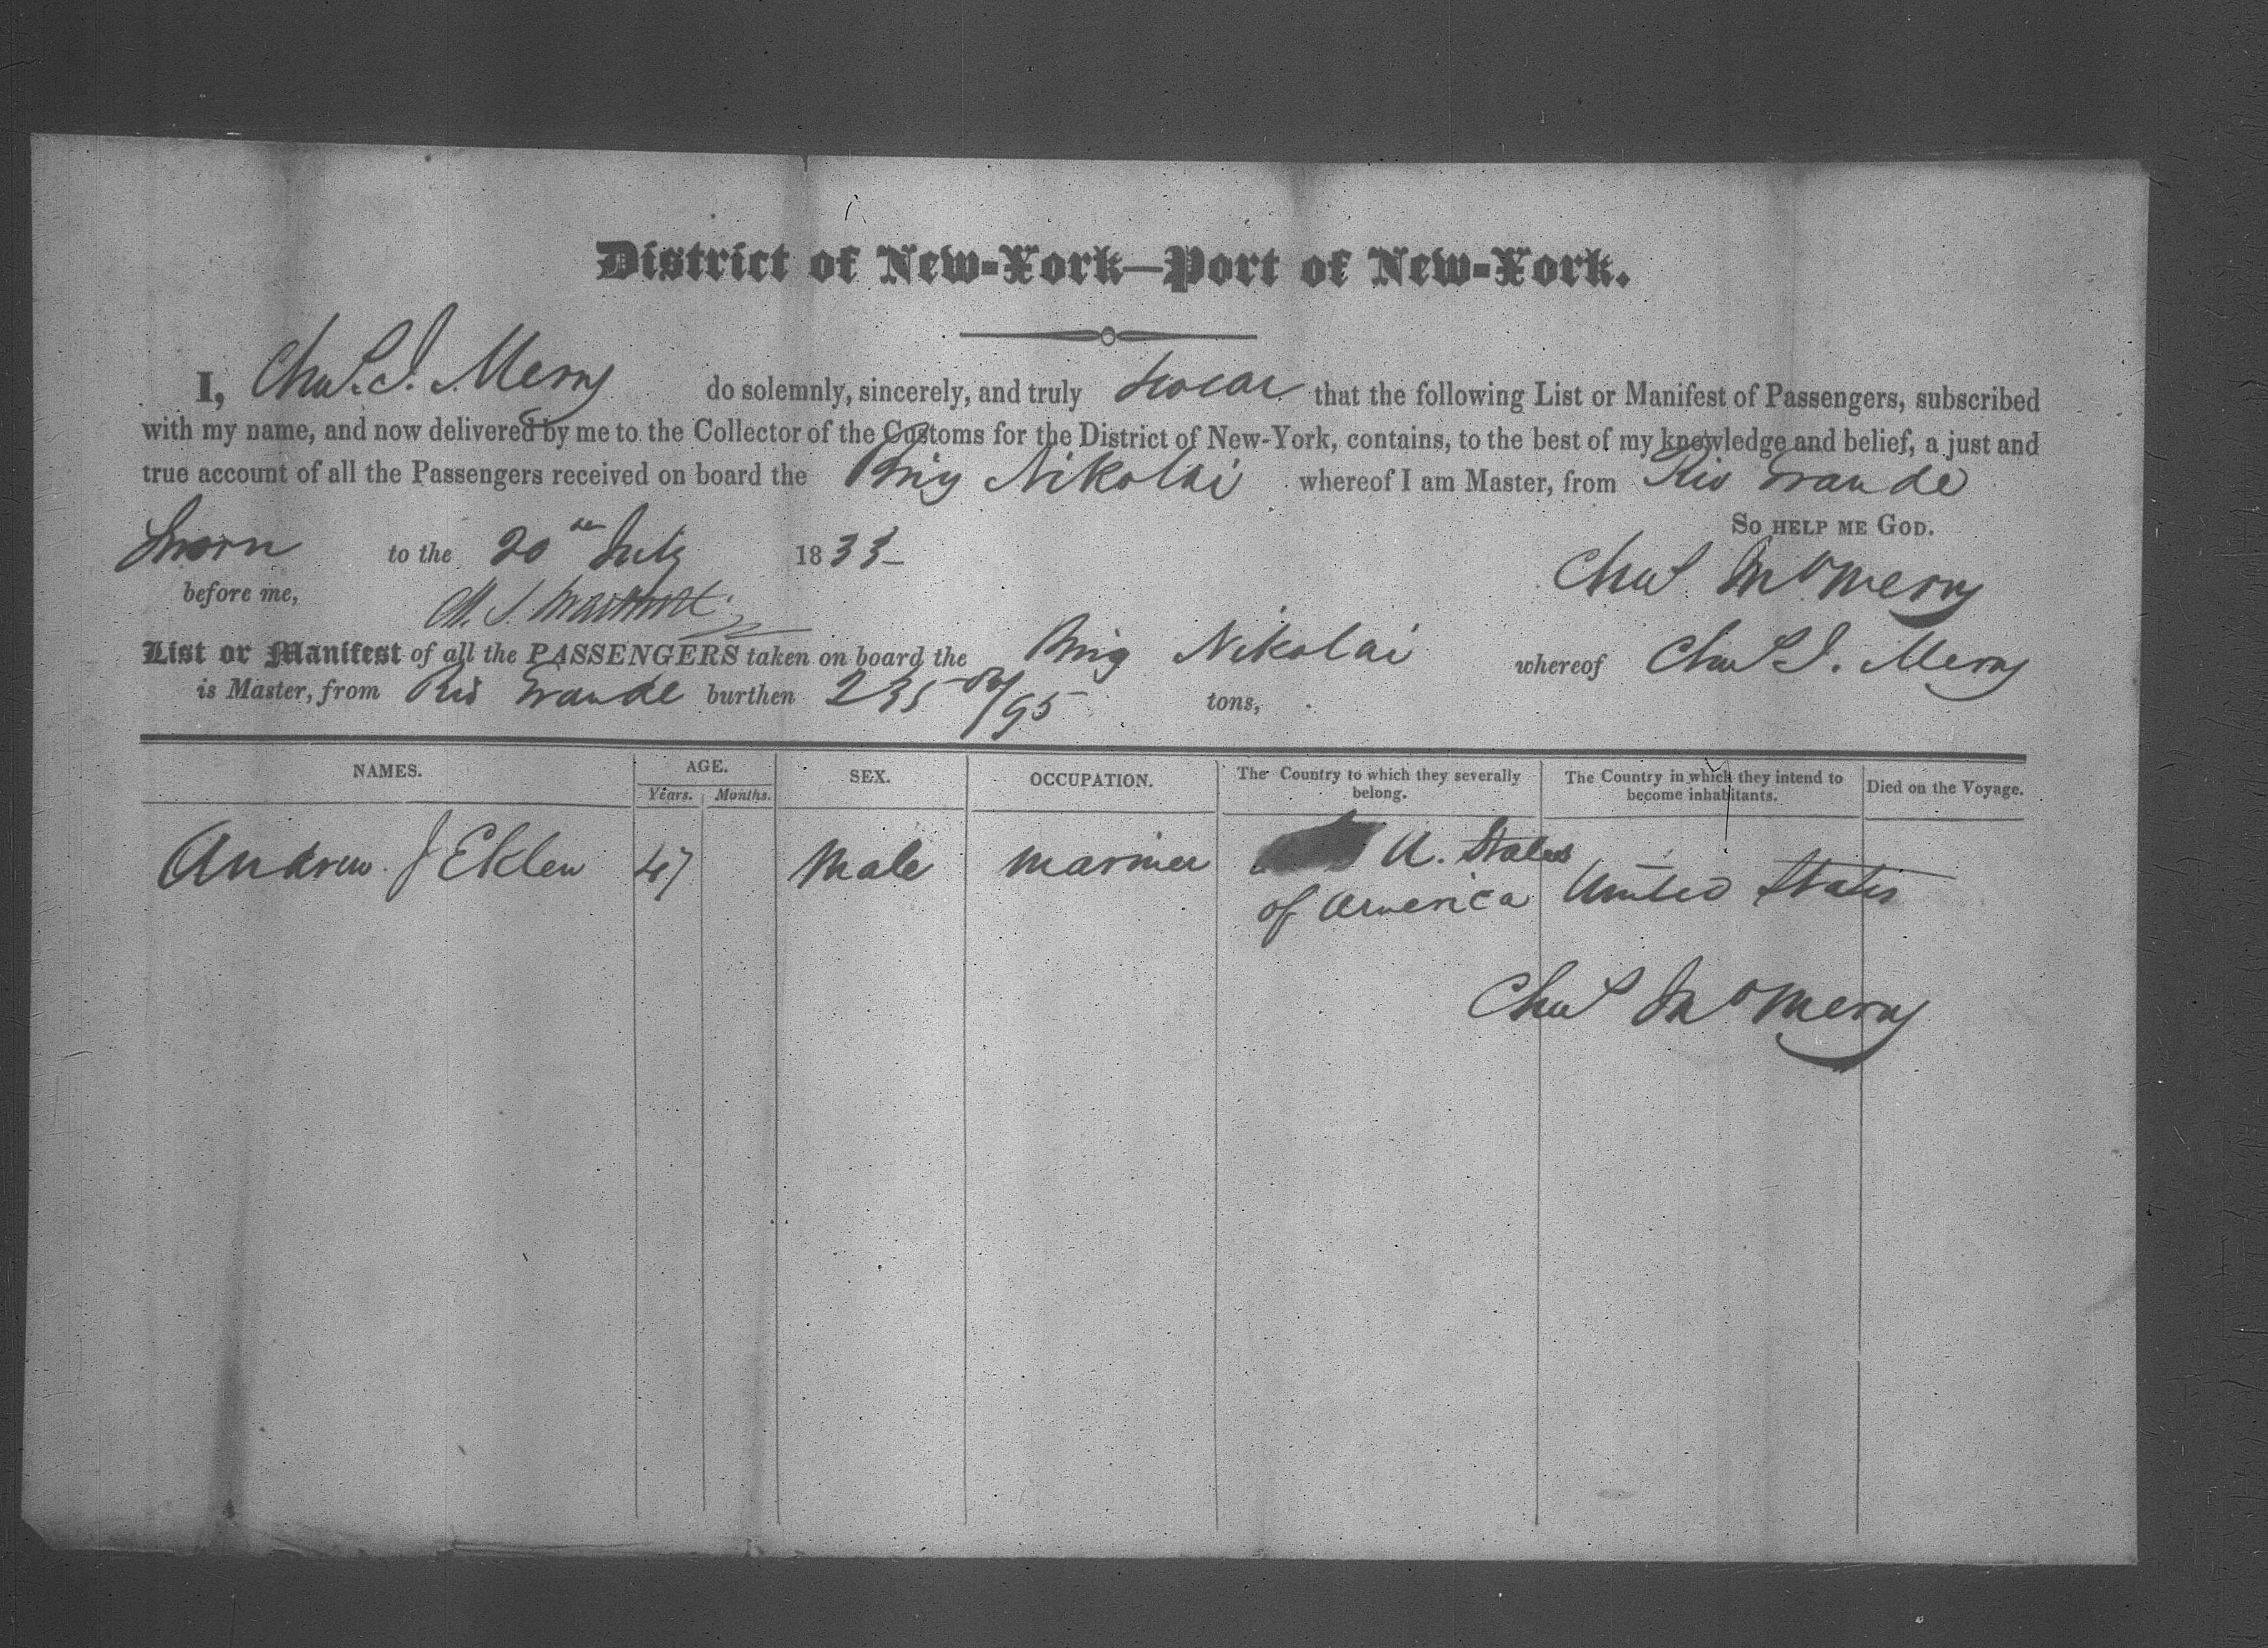 District of New-York—Port of New-York.
I, Chas. J. Merry do solemnly, sincerely, and truly swear that the following List or Manifest of Passengers, subscribed
with my name, and now delivered by me to the Collector of the Customs for the District of New-York, contains, to the best of my knowledge and belief, a just and
true account of all the Passengers received on board the Brig Nikolai whereof I am Master, from Rio Grande
So help me God.
Sworn to the 20th July 1833
before me,
Chas Merry
List or Manifest of all the PASSENGERS taken on board the Brig Nikolai whereof Chas J. Merry
is Master, from Rio Grande burthen 235 /95 tons,
NAMES. AGE. SEX. OCCUPATION. The Country to which they severally belong. The Country in which they intend to become inhabitants. Died on the Voyage.
Years. Months.
Andrew J Eklew 47 Male Mariner U. States
of America United States
Chas Merry